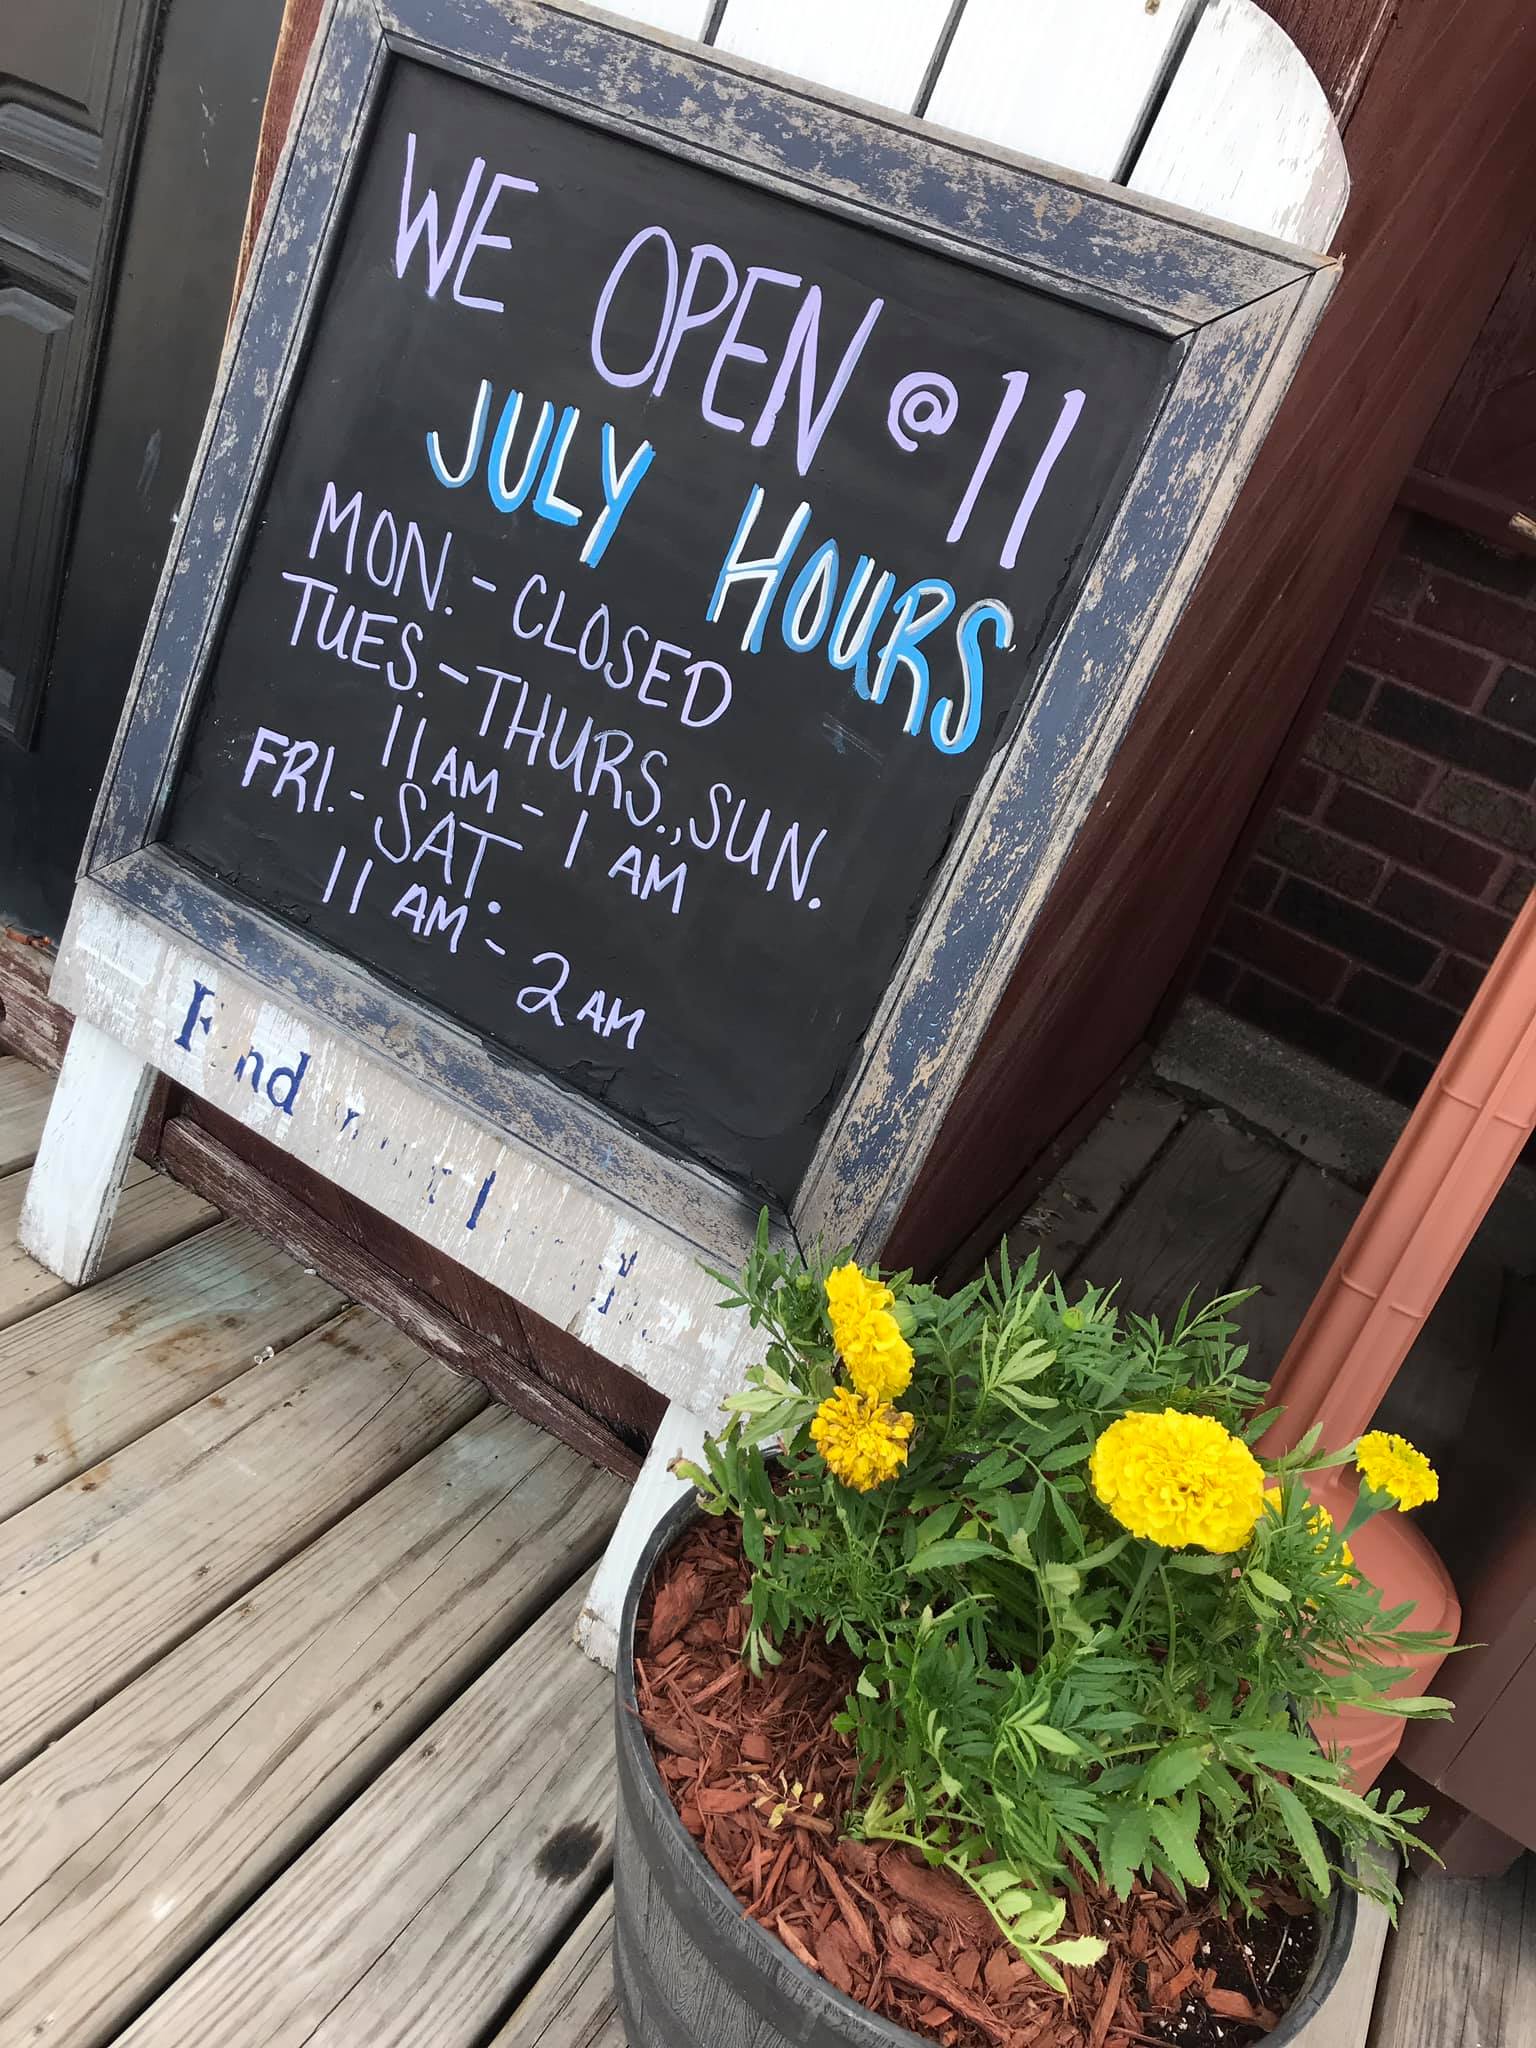 WE OPEN @ 11
JULY HOURS
MON. - CLOSED
TUES. - THURS., SUN.
11 AM - 1 AM
FRI. - SAT.
11 AM - 2 AM